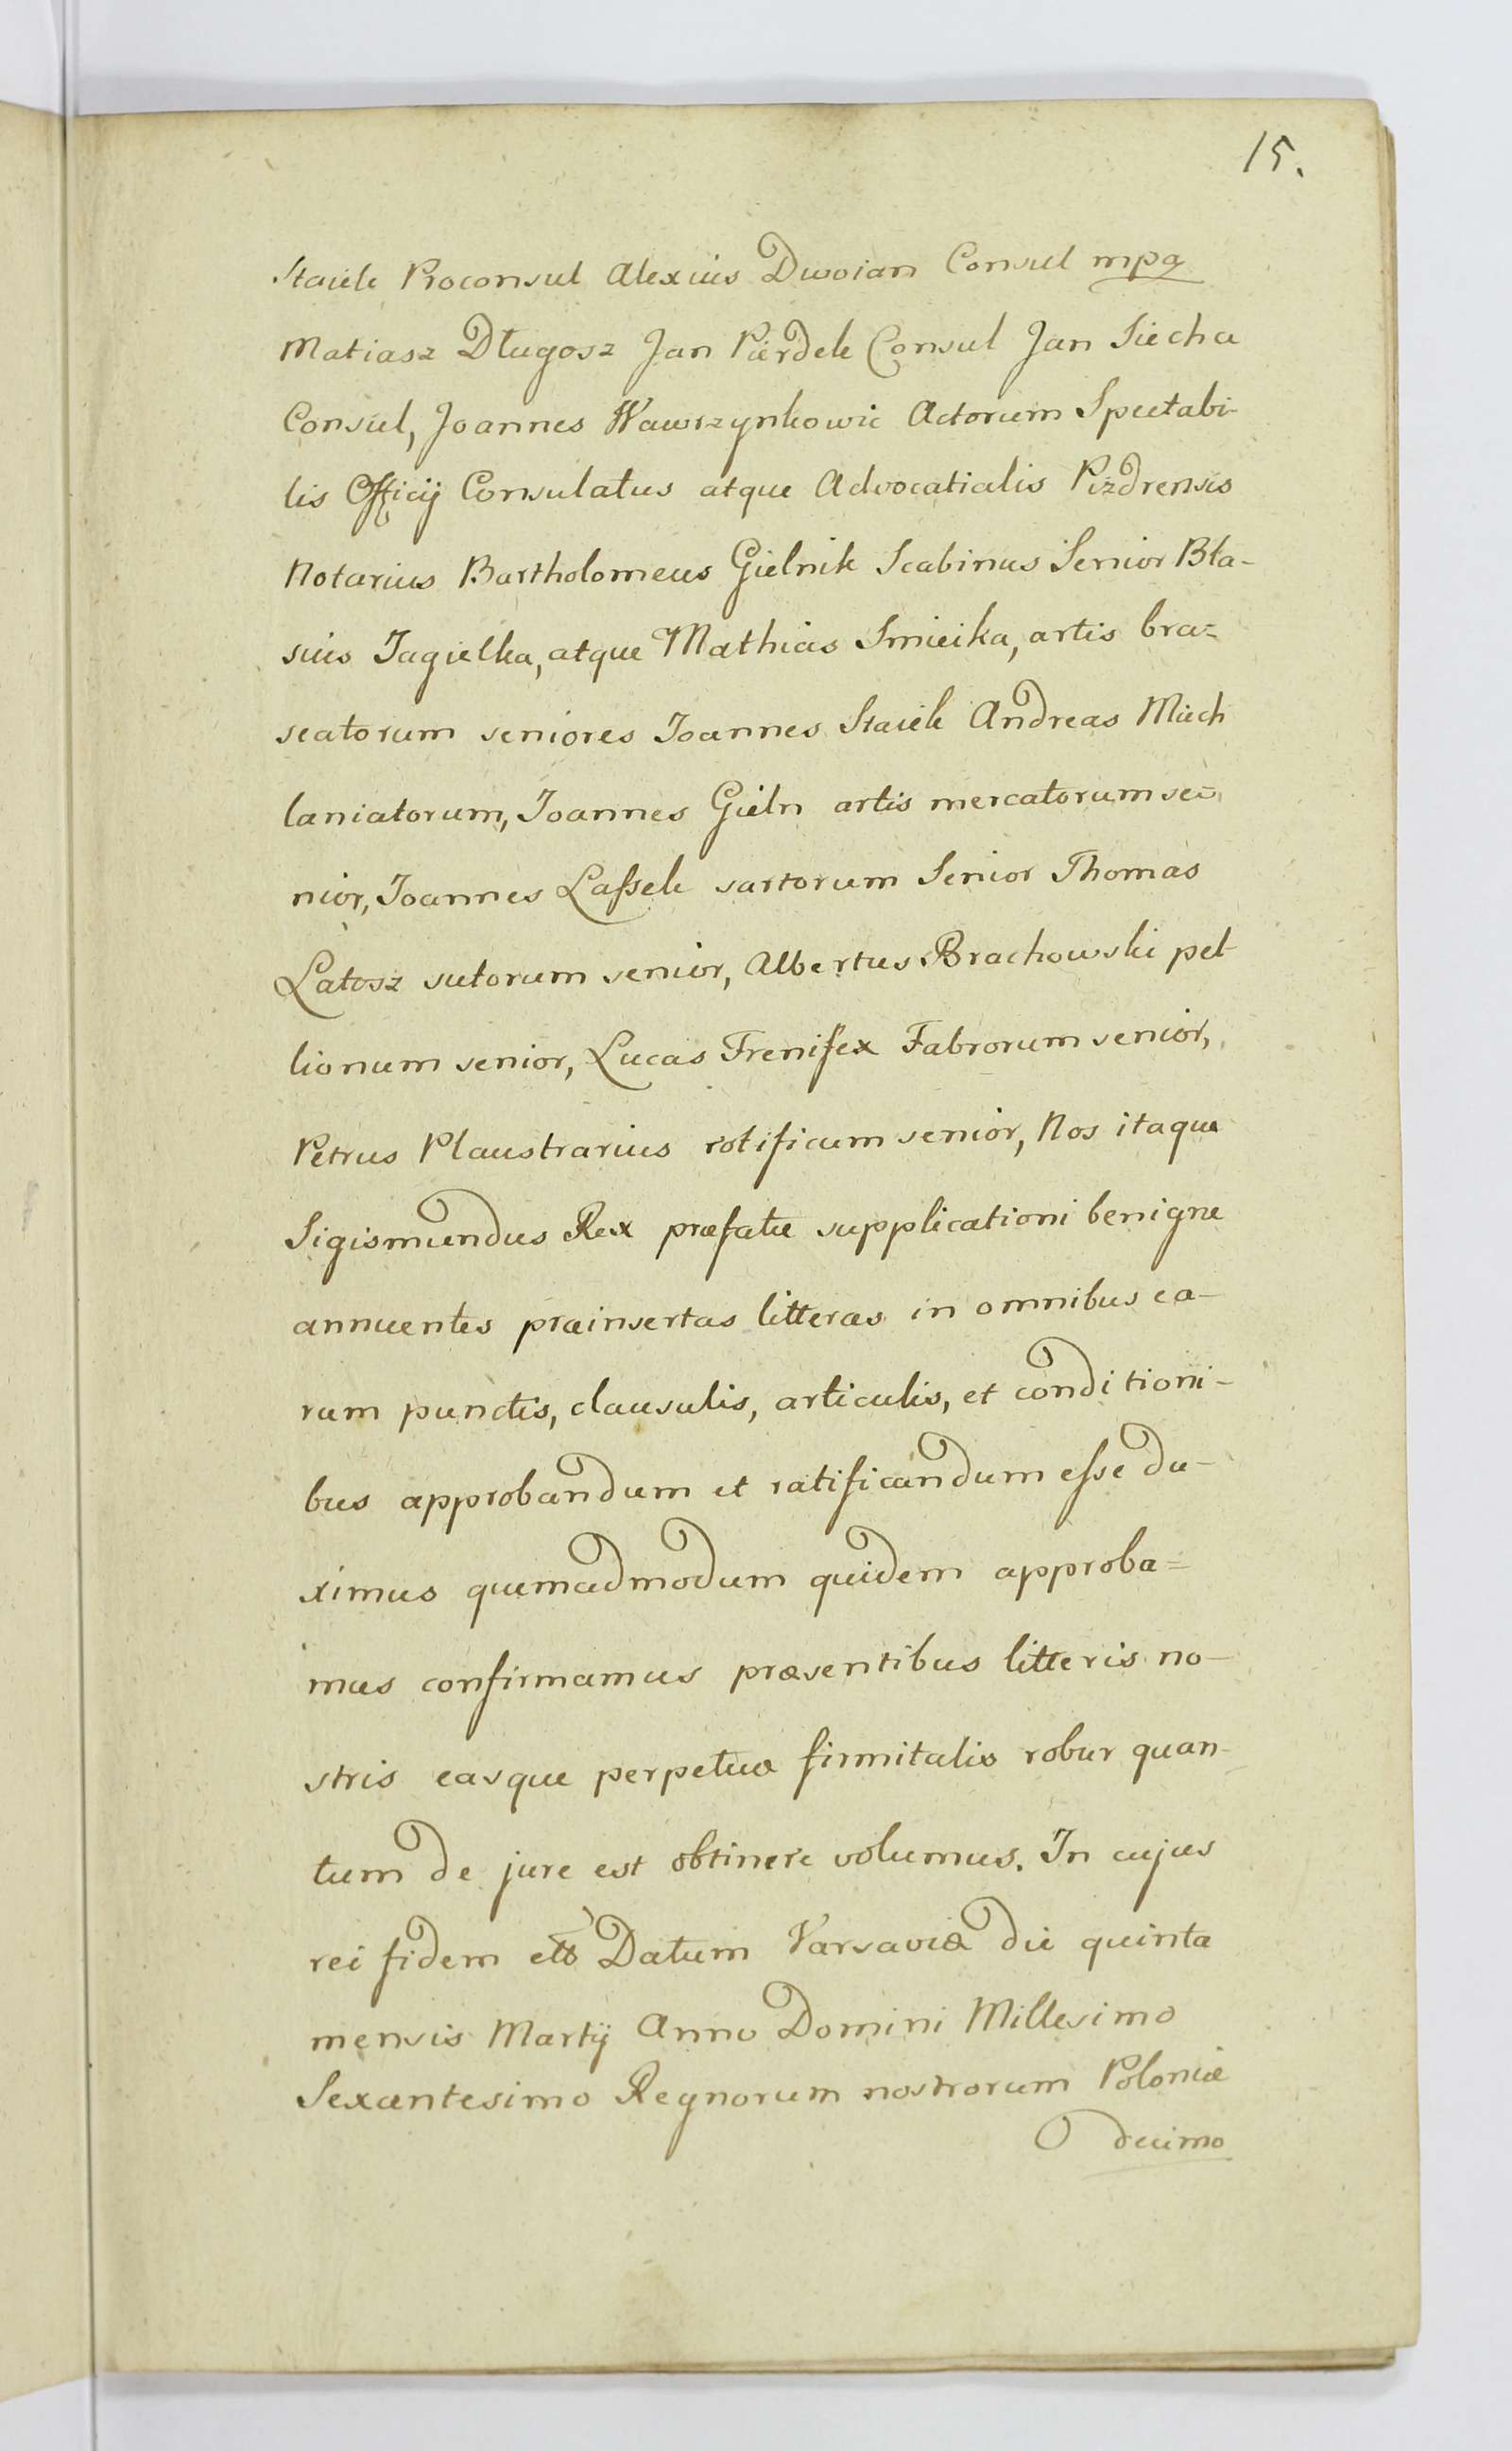 15.
Staick Proconsul Alexius Dwoian Consul mpa
Matiasz Długosz Jan Pierdek Consul Jan Siecha
Consul, Joannes Wawrzynkowic Actorum Spectabi-
lis Officij Consulatus atque Advocatialis Pizdrensis
Notarius Bartholomeus Gielnik Scabinus Senior Bła-
sius Jagielka, atque Mathias Smieika, artis bra=
seatorum seniores Joannes Staiek Andreas Miech
laniatorum, Joannes Gieln artis mercatorum se=
nior, Joannes Lassek sartorum Senior Thomas
Latosz sutorum senior, Albertus Brachowski pel-
lionum senior, Lucas Frenifex Fabrorum senior,
Petrus Plaustrarius rotificum senior, Nos itaque
Sigismundus Rex præfatæ supplicationi benigne
annuentes præinsertas litteras in omnibus ea-
rum punctis, clausulis, articulis, et conditioni-
bus approbandum et ratificandum esse du-
ximus quemadmodum quidem approba=
mus confirmamus præsentibus litteris no-
stris easque perpetuæ firmitatis robur quan-
tum de jure est obtinere volumus. In cujus
rei fidem Datum Varsaviæ die quinta
mensis Martij Anno Domini Millesimo
Sexcentesimo Regnorum nostrorum Poloniæ
decimo